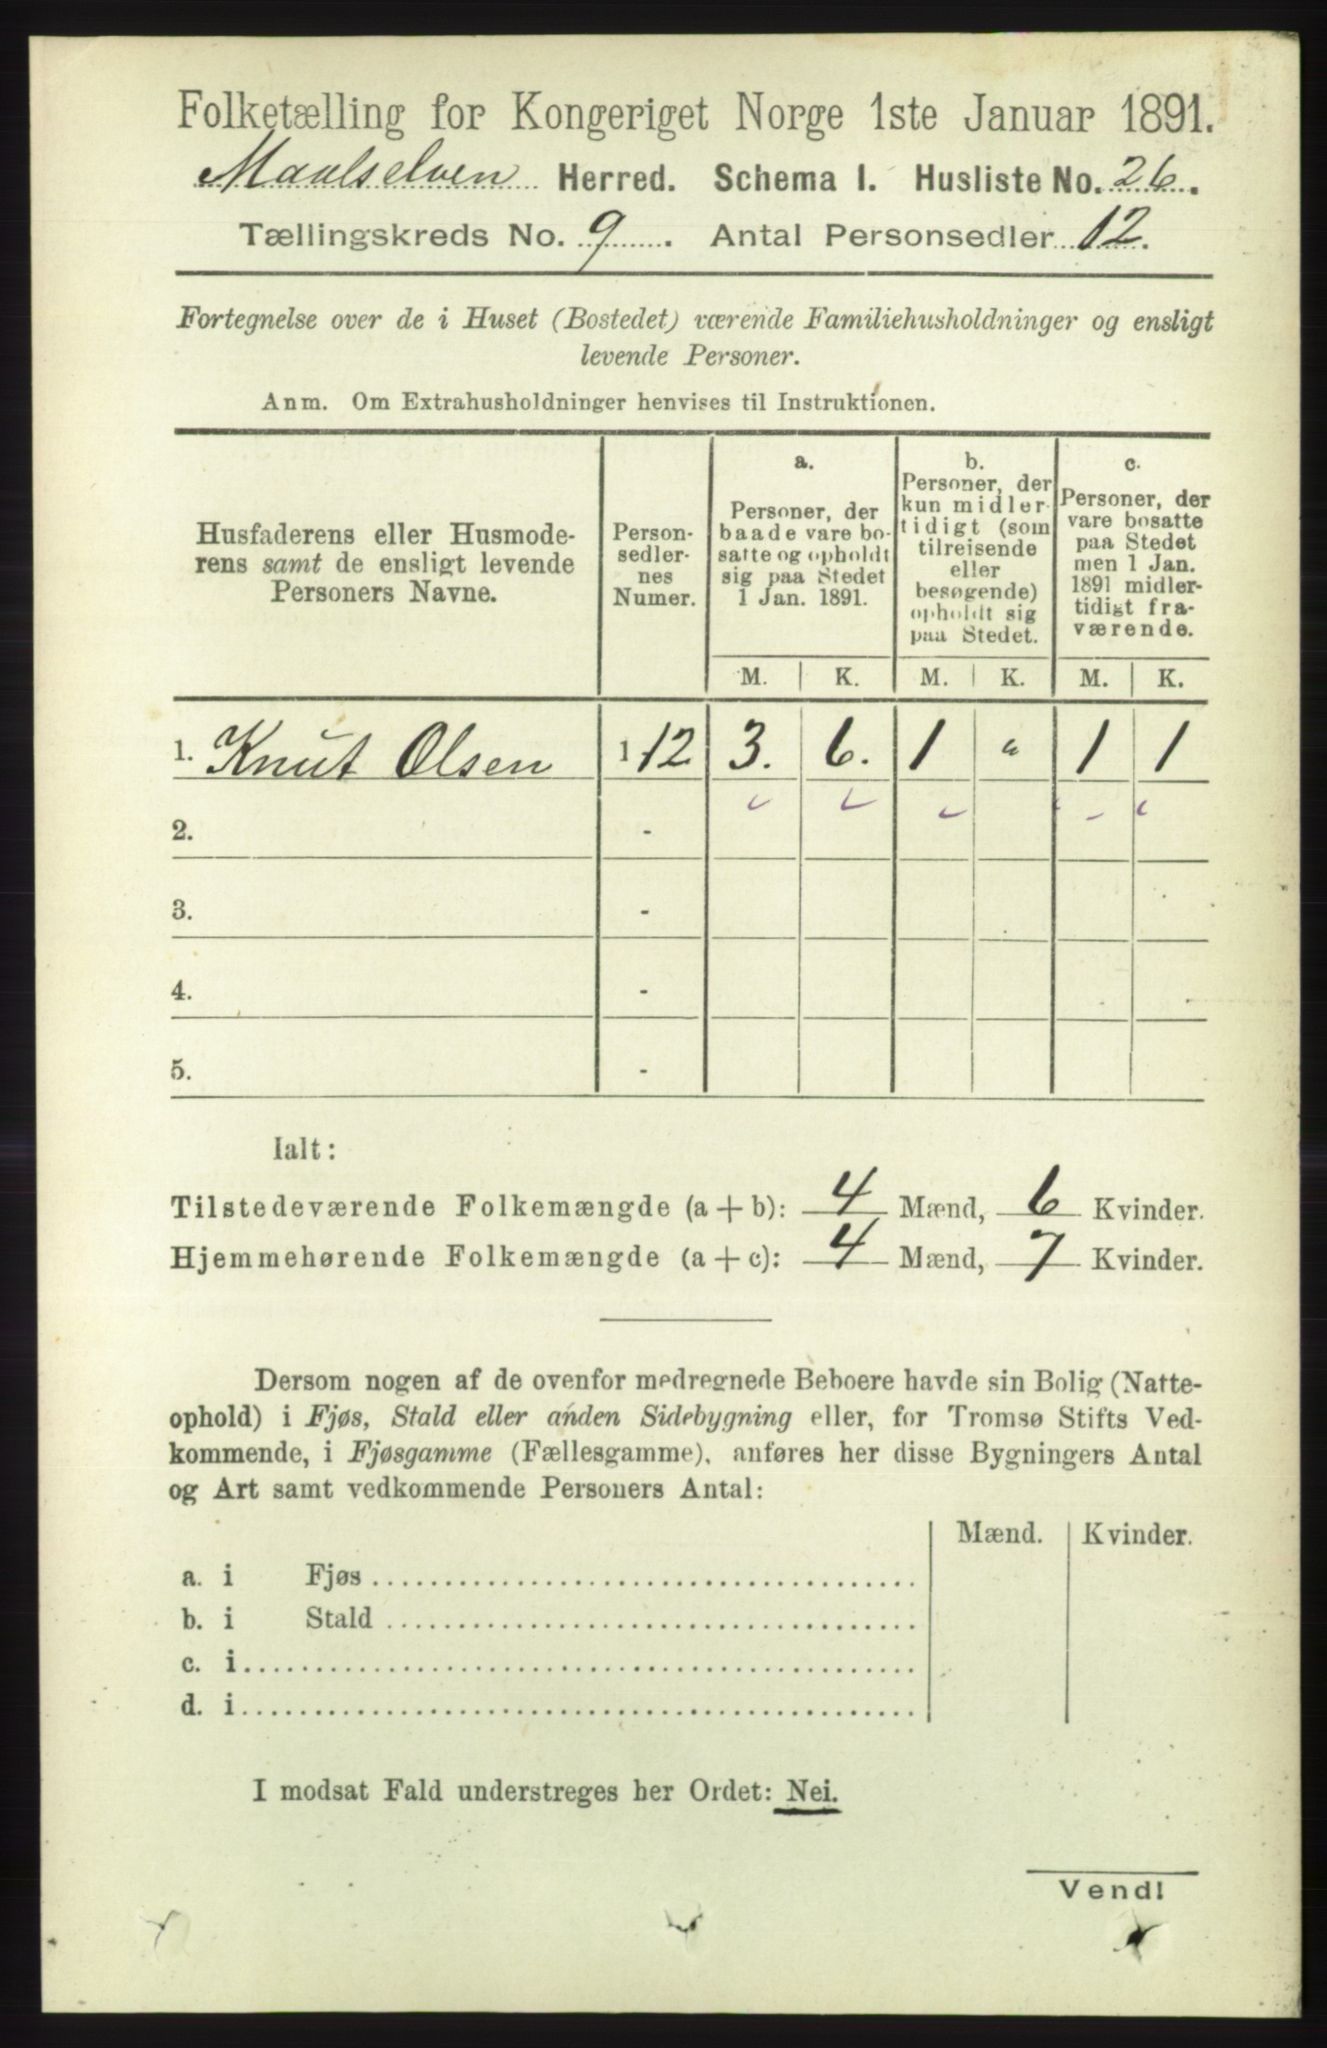 Folketælling for Kongeriget Norge 1ste Januar 1891.
Maalselven Herred. Schema I. Husliste No. 26.
Tællingskreds No. 9. Antal Personsedler 12.
Fortegnelse over de i Huset (Bostedet) værende Familiehusholdninger og ensligt
levende Personer.
Anm. Om Extrahusholdninger henvises til Instruktionen.
Husfaderens eller Husmode-
rens samt de ensligt levende
Personers Navne.
Person-
sedler-
nes
Numer.
a.
Personer, der
baade vare bo-
satte og opholdt
sig paa Stedet
1 Jan. 1891.
b.
Personer, der
kun midler-
tidigt (som
tilreisende
eller
besøgende)
opholdt sig
paa Stedet.
c.
Personer, der
vare bosatte
paa Stedet
men 1 Jan.
1891 midler-
tidigt fra-
værende.
M. K. M. K. M. K.
1. Knut Olsen 1-12 3. 6. 1 " 1 1
2. -
3. -
4. -
5. -
Ialt:
Tilstedeværende Folkemængde (a+b): 4 Mænd, 6 Kvinder.
Hjemmehørende Folkemængde (a+c): 4 Mænd, 7 Kvinder.
Dersom nogen af de ovenfor medregnede Beboere havde sin Bolig (Natte-
ophold) i Fjøs, Stald eller anden Sidebygning eller, for Tromsø Stifts Ved-
kommende, i Fjøsgamme (Fællesgamme), anføres her disse Bygningers Antal
og Art samt vedkommende Personers Antal:
Mænd. Kvinder.
a. i Fjøs
b. i Stald
c. i
d. i
I modsat Fald understreges her Ordet: Nei.
Vend!